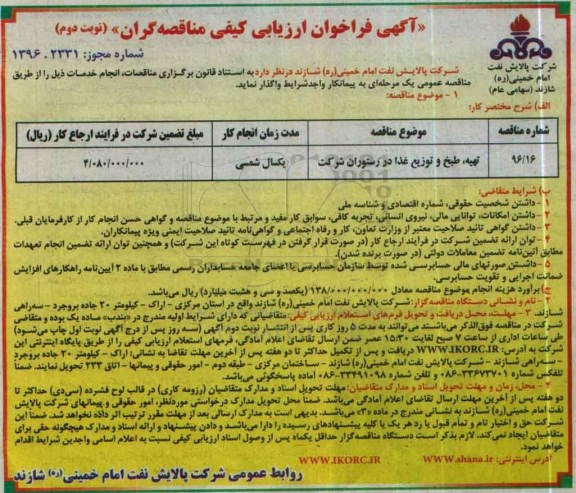 «آگهی فراخوان ارزیابی کیفی مناقصه‌گران» (نوبت دوم)
شماره مجوز: ۲۳۳۱ . ۱۳۹۶
شرکت پالایش نفت
امام خمینی(ره)
شازند (سهامی عام)
شرکت پالایش نفت امام خمینی(ره) شازند درنظر دارد به استناد قانون برگزاری مناقصات، انجام خدمات ذیل را از طریق
مناقصه عمومی یک مرحله‌ای به پیمانکار واجدشرایط واگذار نماید.
۱ - موضوع مناقصه:
الف) شرح مختصر کار:
شماره مناقصه موضوع مناقصه مدت زمان انجام کار مبلغ تضمین شرکت در فرایند ارجاع کار (ریال)
۹۶/۱۶ تهیه، طبخ و توزیع غذا در رستوران شرکت یکسال شمسی ۴/۰۸۰/۰۰۰/۰۰۰
ب) شرایط متقاضی:
۱ - داشتن شخصیت حقوقی، شماره اقتصادی و شناسه ملی
۲ - داشتن امکانات، توانایی مالی، نیروی انسانی، تجربه کافی، سوابق کار مفید و مرتبط با موضوع مناقصه و گواهی حسن انجام کار از کارفرمایان قبلی.
۳ - داشتن گواهی تائید صلاحیت معتبر از وزارت تعاون، کار و رفاه اجتماعی و گواهی‌نامه تائید صلاحیت ایمنی ویژه پیمانکاران.
۴ - توان ارائه تضمین شرکت در فرایند ارجاع کار (در صورت قرار گرفتن در فهرست کوتاه این شرکت) و همچنین توان ارائه تضمین انجام تعهدات
مطابق آئین‌نامه تضمین معاملات دولتی (در صورت برنده شدن).
۵ - داشتن صورتهای مالی حسابرسی شده توسط سازمان حسابرسی یا اعضای جامعه حسابداران رسمی مطابق با ماده ۲ آیین‌نامه راهکارهای افزایش
ضمانت اجرایی و تقویت حسابرسی.
ج) برآورد هزینه انجام موضوع مناقصه معادل ۱۳۸/۰۰۰/۰۰۰/۰۰۰ (یکصد و سی و هشت میلیارد) ریال می‌باشد.
۲ - نام و نشانی دستگاه مناقصه‌گزار: شرکت پالایش نفت امام خمینی(ره) شازند واقع در استان مرکزی - اراک - کیلومتر ۲۰ جاده بروجرد - سه‌راهی
شازند. ۳ - مهلت، محل دریافت و تحویل فرم‌های استعلام ارزیابی کیفی: متقاضیانی که دارای شرایط اولیه مندرج در «بندب» ماده یک بوده و متقاضی
شرکت در مناقصه فوق‌الذکر می‌باشند می‌توانند به مدت ۵ روز کاری پس از انتشار نوبت دوم آگهی (سه روز پس از درج آگهی نوبت اول چاپ می‌شود)
طی ساعات اداری از ساعت ۷ صبح لغایت ۱۵:۳۰ عصر ضمن ارسال تقاضای اعلام آمادگی، فرمهای استعلام ارزیابی کیفی را از طریق پایگاه اینترنتی این
شرکت به آدرس: WWW.IKORC.IR دریافت و پس از تکمیل حداکثر تا دو هفته پس از آخرین مهلت تقاضا به نشانی: اراک - کیلومتر ۲۰ جاده بروجرد
- سه‌راهی شازند - شرکت پالایش نفت امام خمینی(ره) شازند - ساختمان مرکزی - طبقه دوم - امور حقوقی و پیمانها - اتاق ۲۳۳ تحویل نمایند. ضمناً
تلفکس شماره ۳۳۶۷۳۷۰۱-۰۸۶ و تلفن شماره ۳۳۴۹۱۰۹۸-۰۸۶ آماده پاسخگوئی می‌باشد.
۴ - محل، زمان و مهلت تحویل اسناد و مدارک متقاضیان: مهلت تحویل اسناد و مدارک متقاضیان (رزومه کاری) در قالب لوح فشرده (سی‌دی) حداکثر تا
دو هفته پس از آخرین مهلت ارسال تقاضای اعلام آمادگی می‌باشد. ضمناً محل تحویل مدارک درخواستی موردنظر، امور حقوقی و پیمانهای شرکت پالایش
نفت امام خمینی(ره) شازند به نشانی مندرج در ماده «۳» می‌باشد. بدیهی است به مدارک ارسالی بعد از مهلت مقرر ترتیب اثر داده نخواهد شد. ضمناً این
شرکت حق و اختیار تام و تمام قبول یا رد هر یک یا کلیه پیشنهادهای رسیده را دارا می‌باشد و دادن پیشنهاد و ارائه اسناد و مدارک هیچگونه حقی برای
متقاضیان ایجاد نمی‌کند. لازم بذکر است دستگاه مناقصه‌گزار حداقل یکماه پس از وصول اسناد ارزیابی کیفی نسبت به اعلام اسامی واجدین شرایط اقدام
خواهد نمود.
آدرس اینترنتی: WWW.IKORC.IR www.shana.ir
روابط عمومی شرکت پالایش نفت امام خمینی(ره) شازند